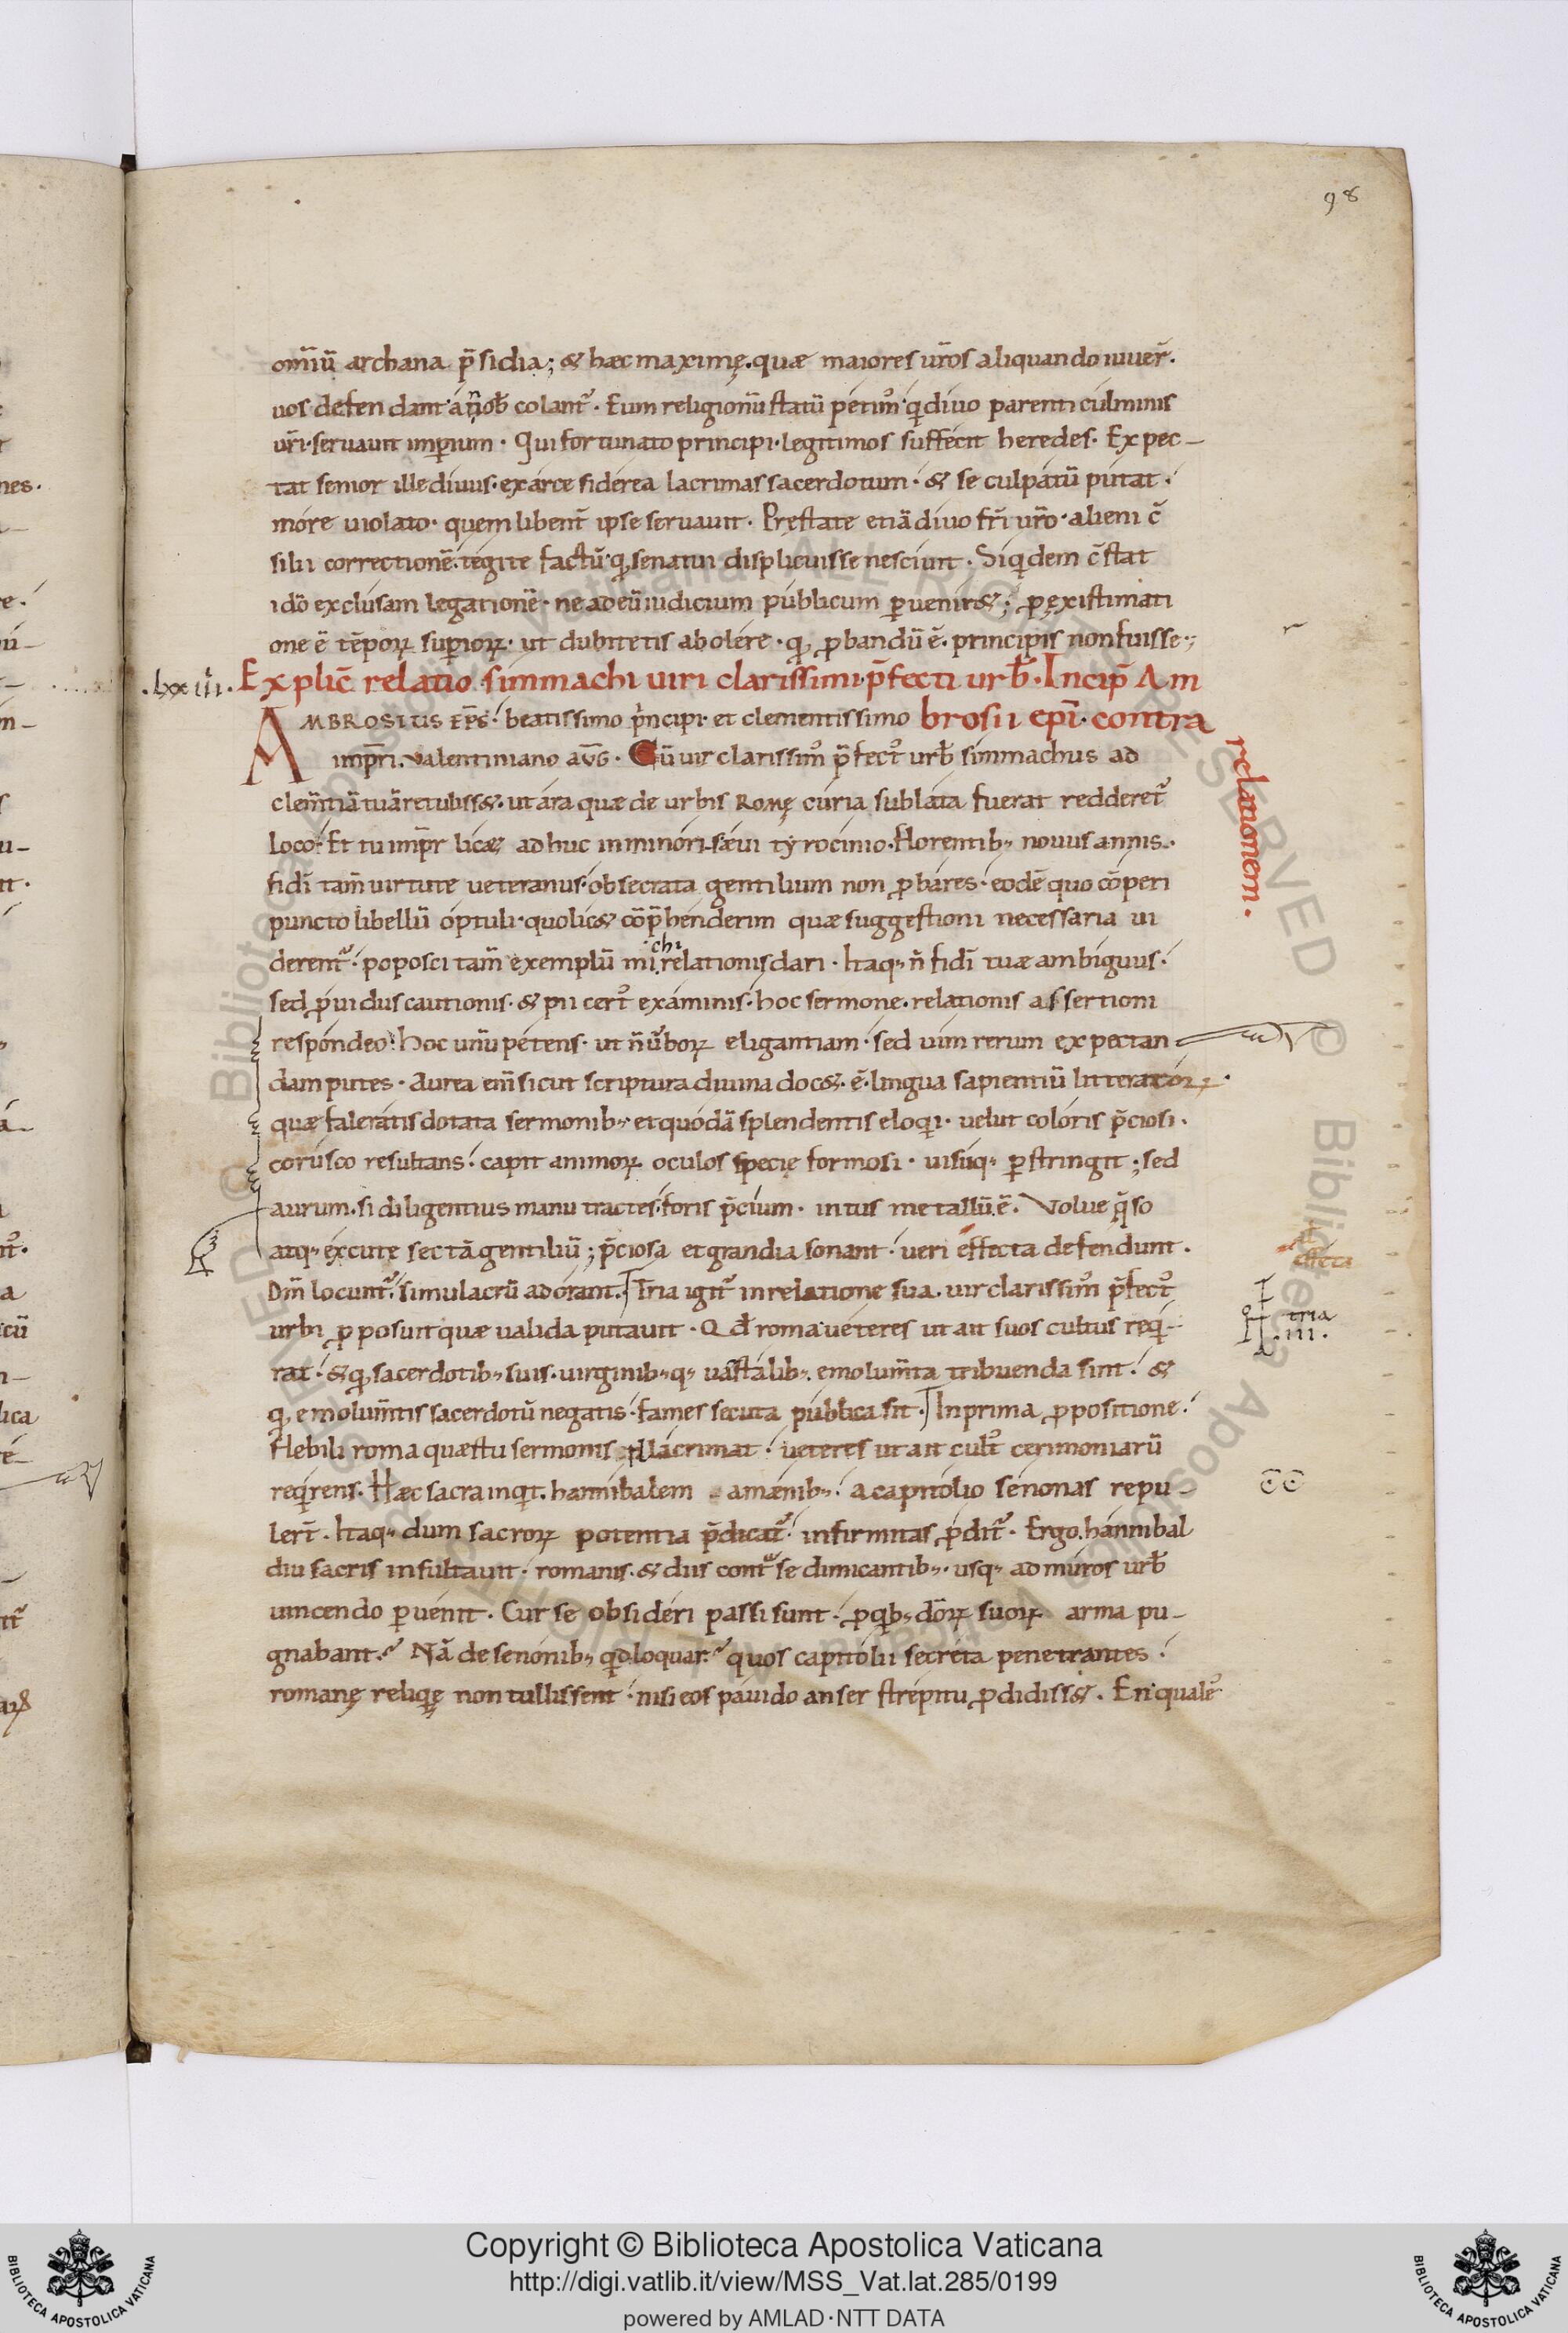 98
omĩũ archana p̃sidia; & hæc maximę. quæ maiores ur̃os aliquando iuuer̃.
uos defendant · a ñob colant᷑. Eum religionũ statũ petim᷒ · qͥ diuo parenti culminis
ur̃i · seruauit imp̱ium. Qui fortunato principi · legitimos suffecit heredes. Expec-
tat senior ille diuus · ex arce siderea lacrimas sacerdotum · & se culpatũ putat ·
more uiolato · quem libent̃ ipse seruauit. Prestate etiã diuo fr̃i ur̃o · alieni c̃
silii correctionẽ. tegite factũ · qđ senatui displicuisse nesciuit. Siqͥdem c̃stat
idõ exclusam legationẽ · ne ad eũ iudicium publicum p̱ueniret; ꝓ existimati
one ẽ tẽpoꝝ sup̱ioꝝ · ut dubitetis abolere · qđ ꝓbandũ ẽ. principis non fuisse;
.lxxiii. Explic̃ relatio simmachi uiri clarissimi · p̃fecti urb̃. Incip̃ Am
AMBROSIUS EP̃S · beatissimo pͥncipi · et clementissimo brosii ep̃i · contra
relationem.
imp̃ri. Valentiniano AVG̃. Cũ uir clarissim᷒ p̃fect᷒ urb̃ simmachus ad
clem̃tiã tuã retuliss&. ut ara quæ de urbis Romę curia sublata fuerat redderet᷑
loco · Et tu imp̃r lic& adhuc in minoris æui tyrocinio. florentibꝫ nouus annis.
fidi tam̃ uirtute ueteranus · obsecrata gentilium non ꝓbares · eodẽ quo cõperi
puncto libellũ optuli · quo lic& cõp̃henderim quæ suggestioni necessaria ui
derent᷑ · poposci tam̃ exemplũ mi chi relationis dari. Itaqꝫ ñ fidi tuæ ambiguus ·
sed ꝓuidus cautionis · & pii cert᷒ examinis · hoc sermone · relationis assertioni
respondeo · Hoc unũ petens · ut ñ ũboꝝ eligantiam · sed uim rerum expectan
dam putes. Aurea em̃ sicut scriptura diuina doc&. ẽ · lingua sapientiũ litteratoꝝ.
quæ faleratis dotata sermonibꝫ · et quodã splendentis eloqͥi · uelut coloris p̃ciosi.
corusco resultans · capit animoꝝ oculos specie formosi · uisuqꝫ p̱stringit; sed
aurum. si diligentius manu tractes · foris p̃cium · intus metallũ ẽ. Volue q̃so
atqꝫ excute sectã gentiliũ; p̃ciosa et grandia sonant · ueri effecta defendunt.
effeta
Dm̃ locunt᷑ · simulacrũ adorant. Tria igit᷑ in relatione sua. uir clarissim᷒ p̃fect᷒
tria
.III.
urbi ꝓposuit quæ ualida putauit. Qđ roma ueteres ut ait suos cultus reqͥ-
rat · & qđ sacerdotibꝫ suis. uirginibꝫqꝫ uæstalibꝫ. emolum̃ta tribuenda sint · &
qđ emolum̃tis sacerdotũ negatis · fames secuta publica sit. In prima ꝓpositione ·
flebili roma quæstu sermonis illacrimat · ueteres ut ait cult᷒ cerimoniarũ
reqͥrens. Hæc sacra inqͥt. hannibalem a mænibꝫ · a capitolio senonas repu-
ler̃t. Itaqꝫ dum sacroꝝ potentia p̃dicat᷑ · infirmitas ꝓdit᷑. Ergo hannibal
diu sacris insultauit · romanis. & diis cont᷑ se dimicantibꝫ. usqꝫ ad muros urb̃
uincendo p̱uenit. Cur se obsideri passi sunt · ꝓ qͥbꝫ dõꝝ suoꝝ arma pu-
gnabant? Nã de senonibꝫ qͥd loquar? quos capitolii secreta penetrantes ·
romanę reliqͥę non tullissent · nisi eos pauido anser strepitu ꝓdidiss&. En qualẽ
Copyright © Biblioteca Apostolica Vaticana
http://digi.vatlib.it/view/MSS_Vat.lat.285/0199
powered by AMLAD·NTT DATA
BIBLIOTECA APOSTOLICA VATICANA
BIBLIOTECA APOSTOLICA VATICANA